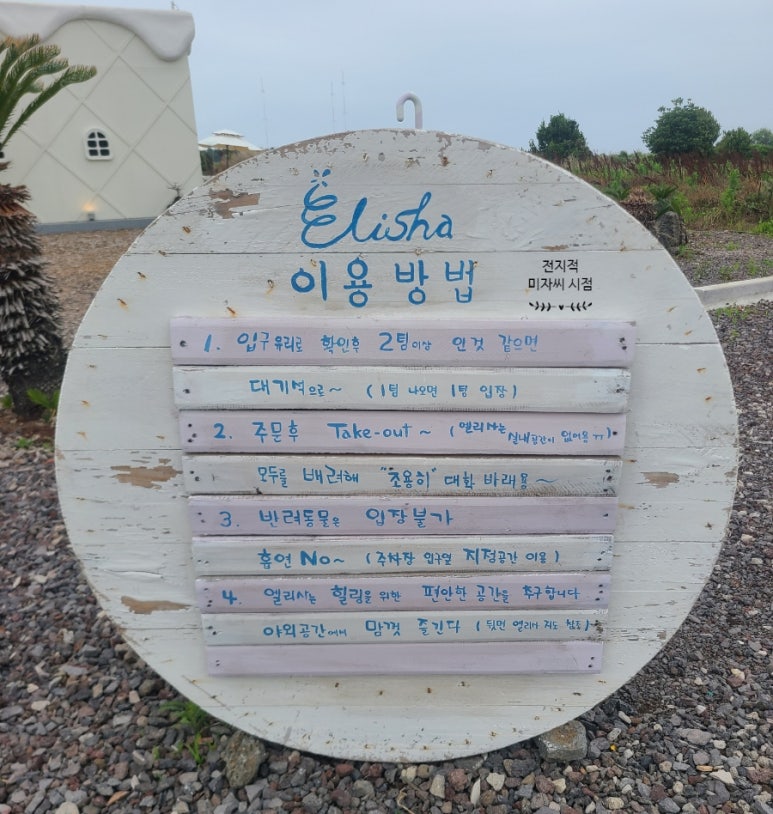 Elisha
이용방법
전지적
미자씨 시점
1. 입구유리로 확인후 2팀이상 안것 같으면
대기석으로~ (1팀 나오면 1팀 입장)
2. 주문후 Take-out~ (엘리사는 실내공간이 없어용ㅠ)
모두를 배려해 "조용히" 대화 바래용~
3. 반려동물은 입장불가
흡연 No~ (주차장 입구옆 지정공간 이용)
4. 엘리사는 힐링을 위한 편안한 공간을 추구합니다
야외공간에서 맘껏 즐긴다 (뒷면 엘리사 지도 참조)